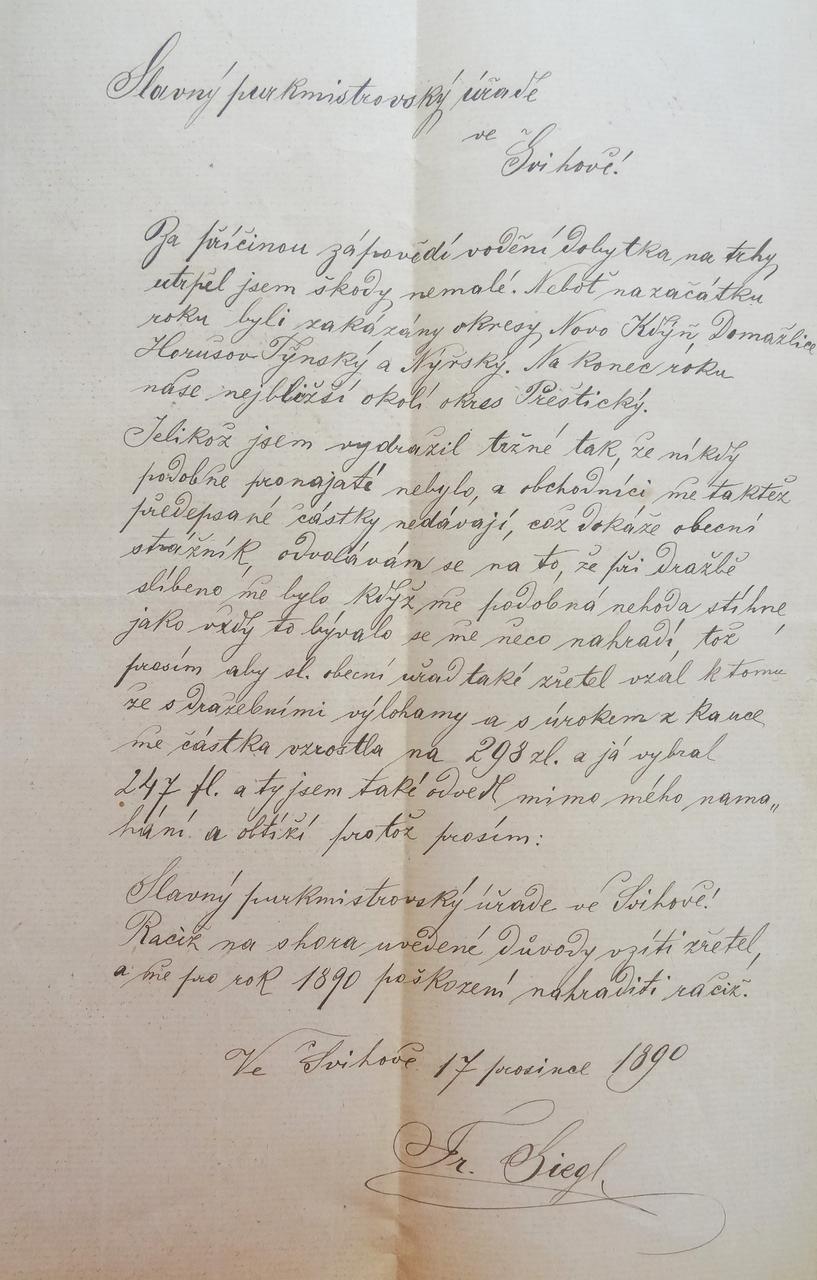 Slavný purkmistrovský úřade
ve
Švihově!
Za příčinou zápovědí vodění dobytka na trhy
utrpěl jsem škody nemalé. Neboť na začátku
roku byli zakázány okresy Novo Kdyň, Domažlice
Horušov Týnský a Nýrský. Na konec roku
naše nejbližší okolí okres Přeštický.
Jelikož jsem vydražil tržné tak, že nikdy
podobně pronajaté nebylo, a obchodníci mě taktéž
předepsané částky nedávají, což dokáže obecní
strážník, odvolávám se na to, že při dražbě
slíbeno mě bylo když mě podobná nehoda stihne,
jako vždy to bývalo se mě něco nahradí, tož
prosím aby sl. obecní úřad také zřetel vzal k tomu
že s dražebními výlohamy a s úrokem z kauce
mě částka vzrostla na 298 zl. a já vybral
247 fl. a ty jsem také odvedl mimo mého nama„
hání a obtíží protož prosím:
Slavný purkmistrovský úřade ve Švihově!
Račiž na shora uvedené důvody vzíti zřetel,
a mě pro rok 1890 poškození nahraditi račiž.
Ve Švihově 17 prosince 1890
Fr. Siegl